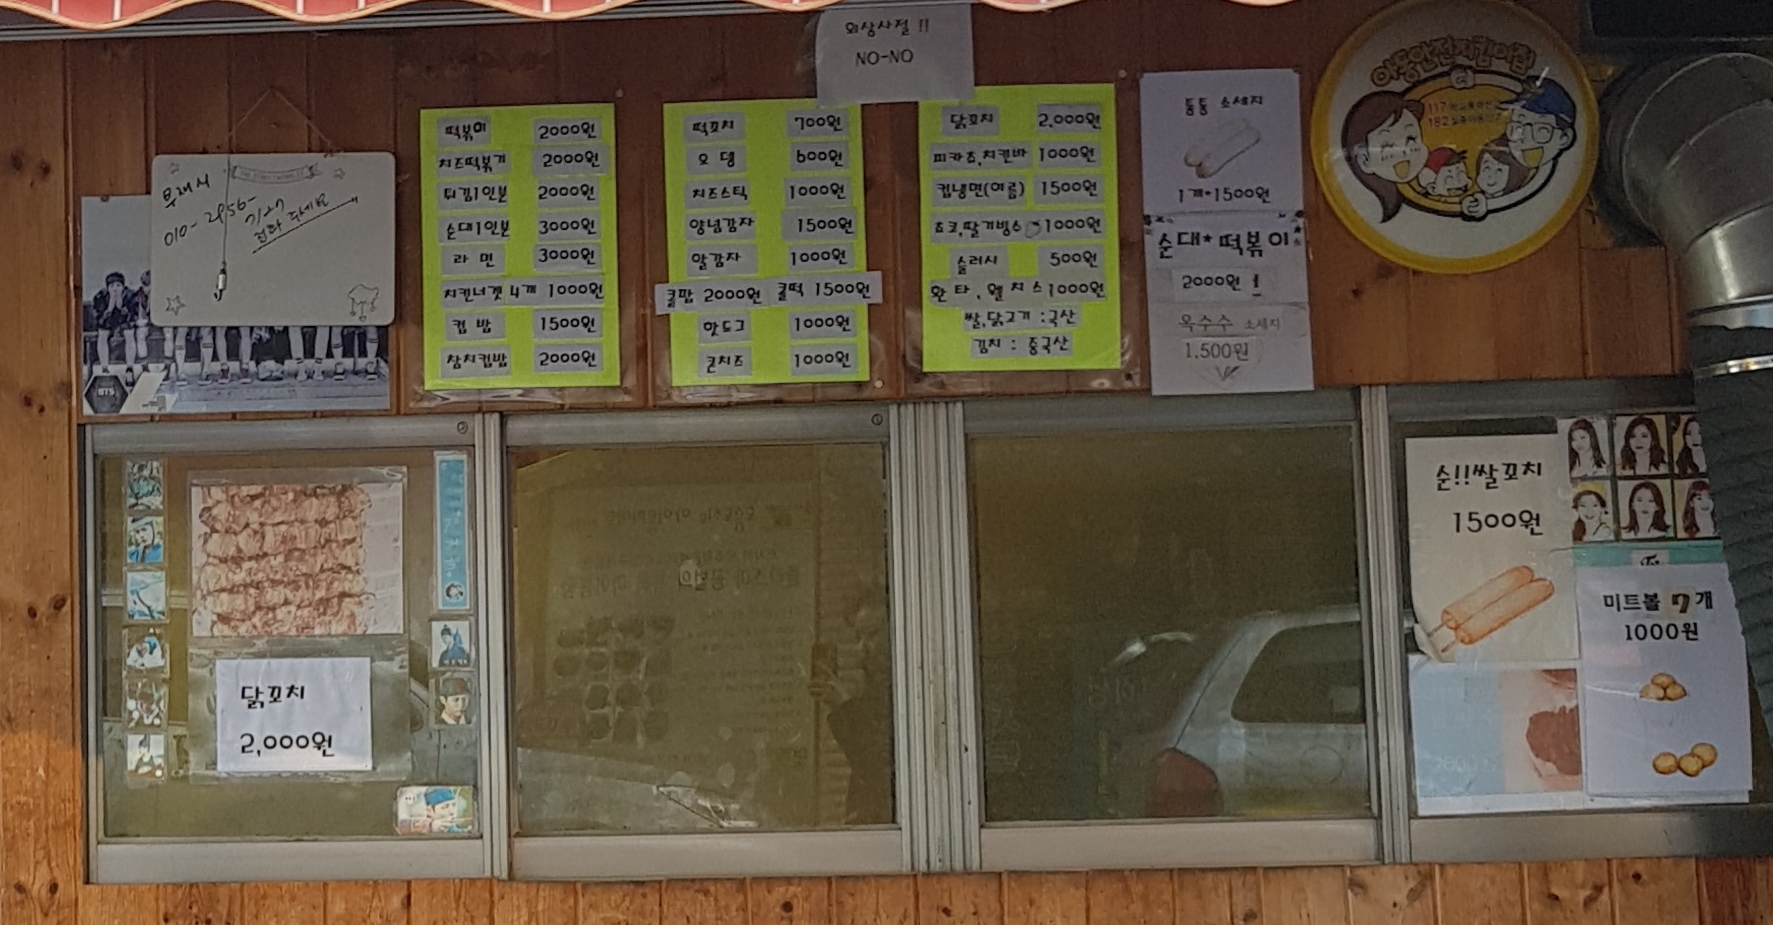 외상사절 !!
NO-NO
부재시
010-2856-
7127
전화 주세요
BTS
떡볶이 2000원
치즈떡볶기 2000원
튀김1인분 2000원
순대1인분 3000원
라 면 3000원
치킨너겟 4개 1000원
컵 밥 1500원
참치컵밥 2000원
떡꼬치 700원
오 뎅 600원
치즈스틱 1000원
양념감자 1500원
알감자 1000원
콜팝 2000원 콜떡 1500원
핫도그 1000원
콘치즈 1000원
닭꼬치 2,000원
피카츄,치킨바 1000원
컵냉면(여름) 1500원
쵸코,딸기빙수 1000원
슬러시 500원
환타,웰치스 1000원
쌀,닭고기 : 국산
김치 : 중국산
통통 소세지
1개*1500원
순대*떡볶이
2000원
옥수수 소세지
1,500원
아동안전지킴이집
117
182 실종아동신고
닭꼬치
2,000원
순!!쌀꼬치
1500원
미트볼 7개
1000원